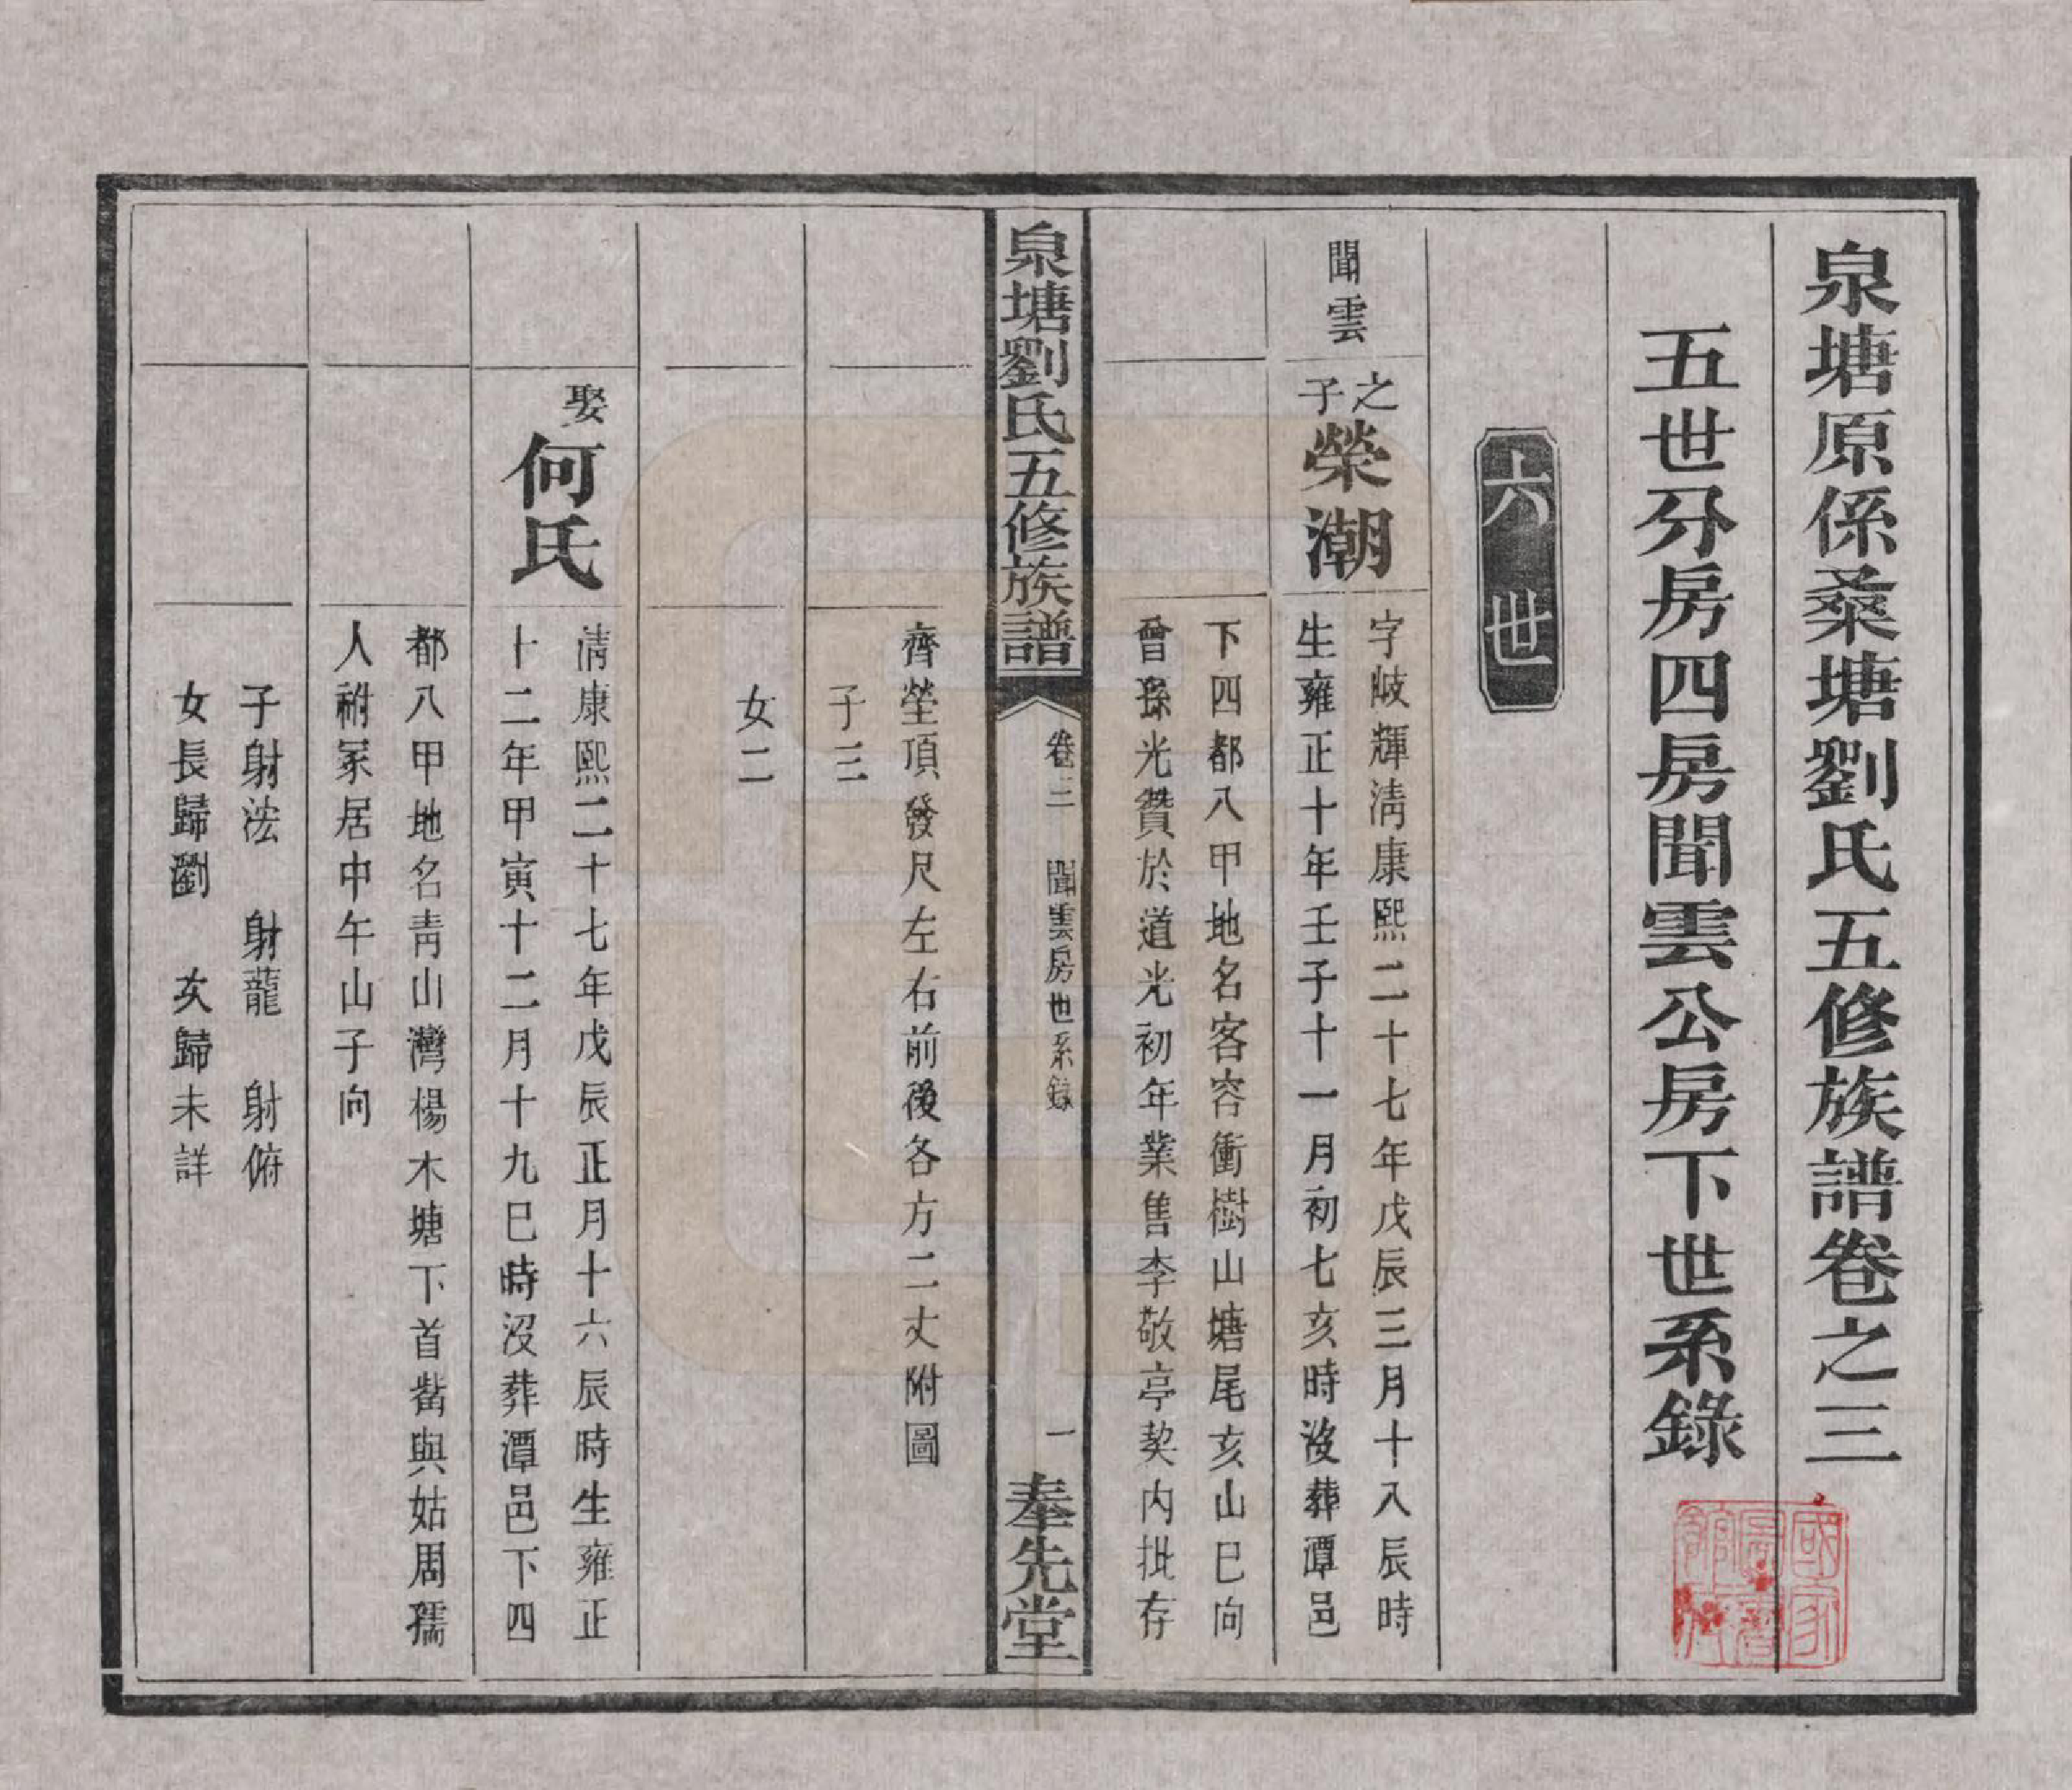 泉塘原係桑塘劉氏五修族譜卷之三
五世分房四房聞雲公房下世系錄
六世
聞雲
之子
榮潮
字岐輝清康熙二十七年戊辰三月十八辰時
生雍正十年壬子十一月初七亥時沒葬潭邑
下四都八甲地名客容衝樹山塘尾亥山巳向
曾孫光贊於道光初年業售李敬亭契內批存
泉塘劉氏五修族譜
卷三
聞雲房世系錄
一
奉先堂
齊塋頂發尺左右前後各方二丈附圖
子三
女二
娶
何氏
清康熙二十七年戊辰正月十六辰時生雍正
十二年甲寅十二月十九巳時沒葬潭邑下四
都八甲地名青山灣楊木塘下首嵅與姑周孺
人祔冢居中午山子向
子射浤 射蘢 射俯
女長歸劉 次歸未詳
國家圖書館藏